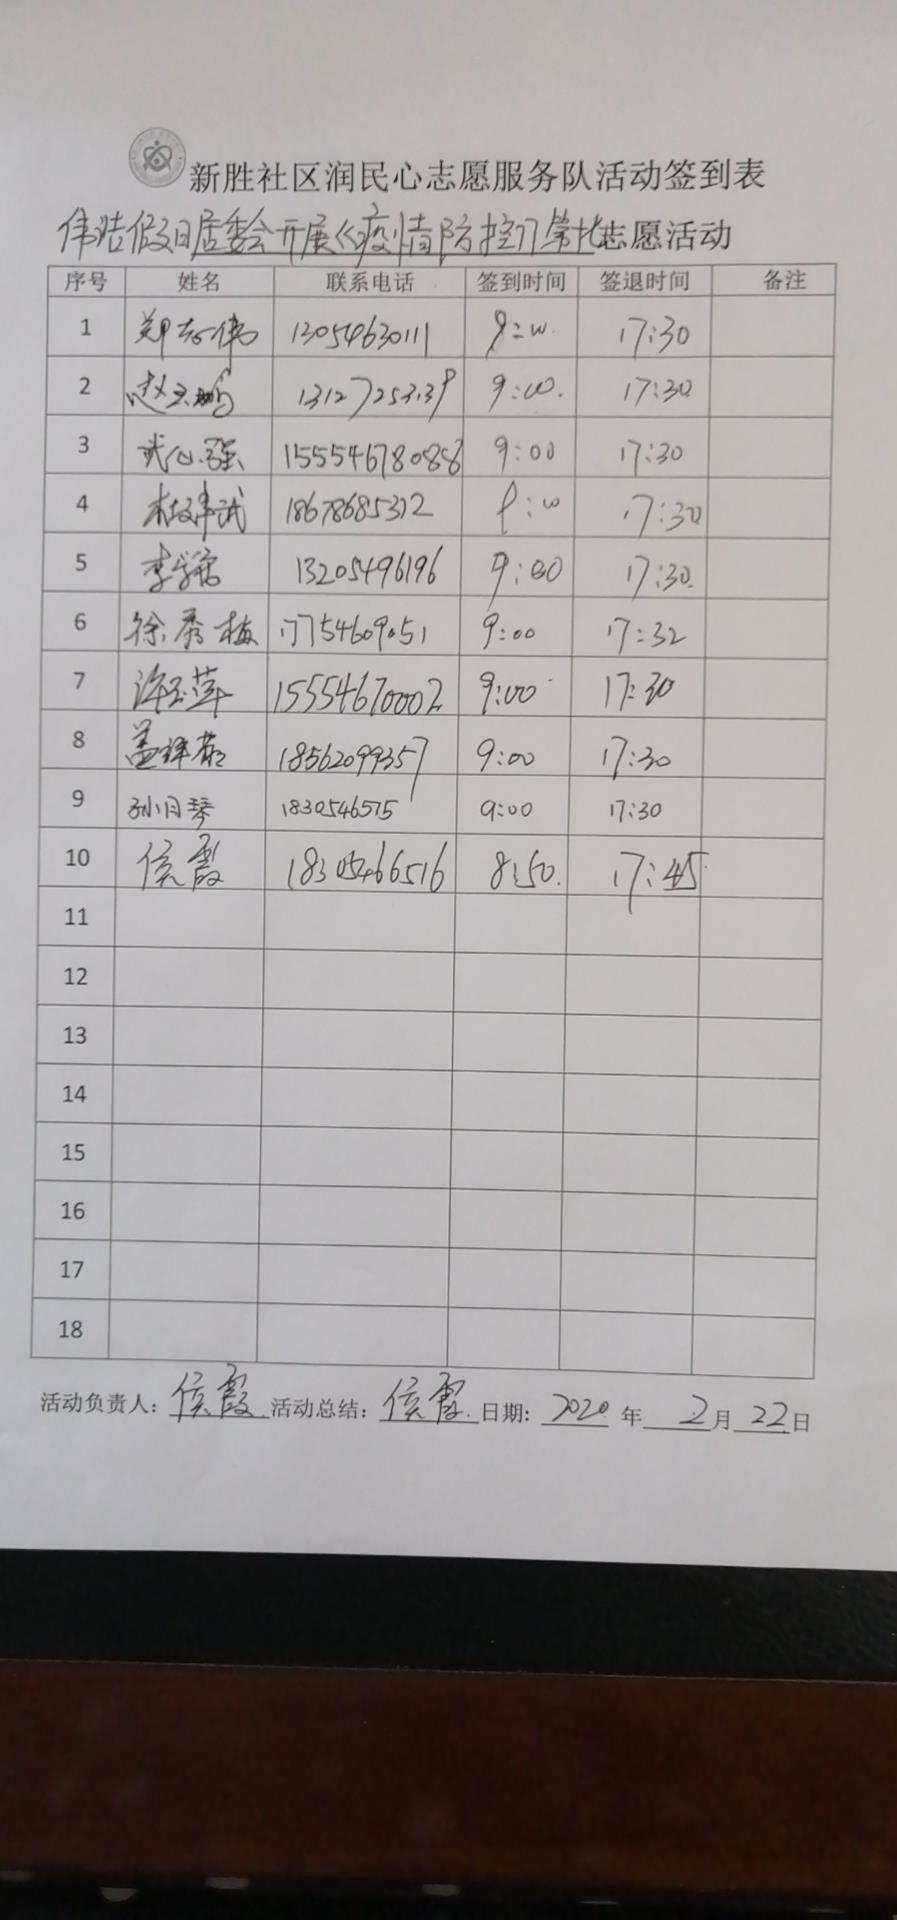 新胜社区润民心志愿服务队活动签到表
伟浩假日居委会开展《疫情防控 志愿活动
序号 姓名 联系电话 签到时间 签退时间 备注
1 郑志伟 13054630111 9:00 17:30
2 赵玉鹏 13127253139 9:00. 17:30
3 武心强 155546780888 9:00 17:30
4 18678685312 9:00 17:30
5 13205496196 9:00 17:30.
6 徐秀梅 17754609051 9:00 17:32
7 许玉萍 15554670002 9:00 17:30
8 18562099357 9:00 17:30
9 孙月琴 1830546575 9:00 17:30
10 侯霞 18305466516 8:50. 17:45
11
12
13
14
15
16
17
18
活动负责人：侯霞. 活动总结：侯霞. 日期: 2020 年 2 月 22 日